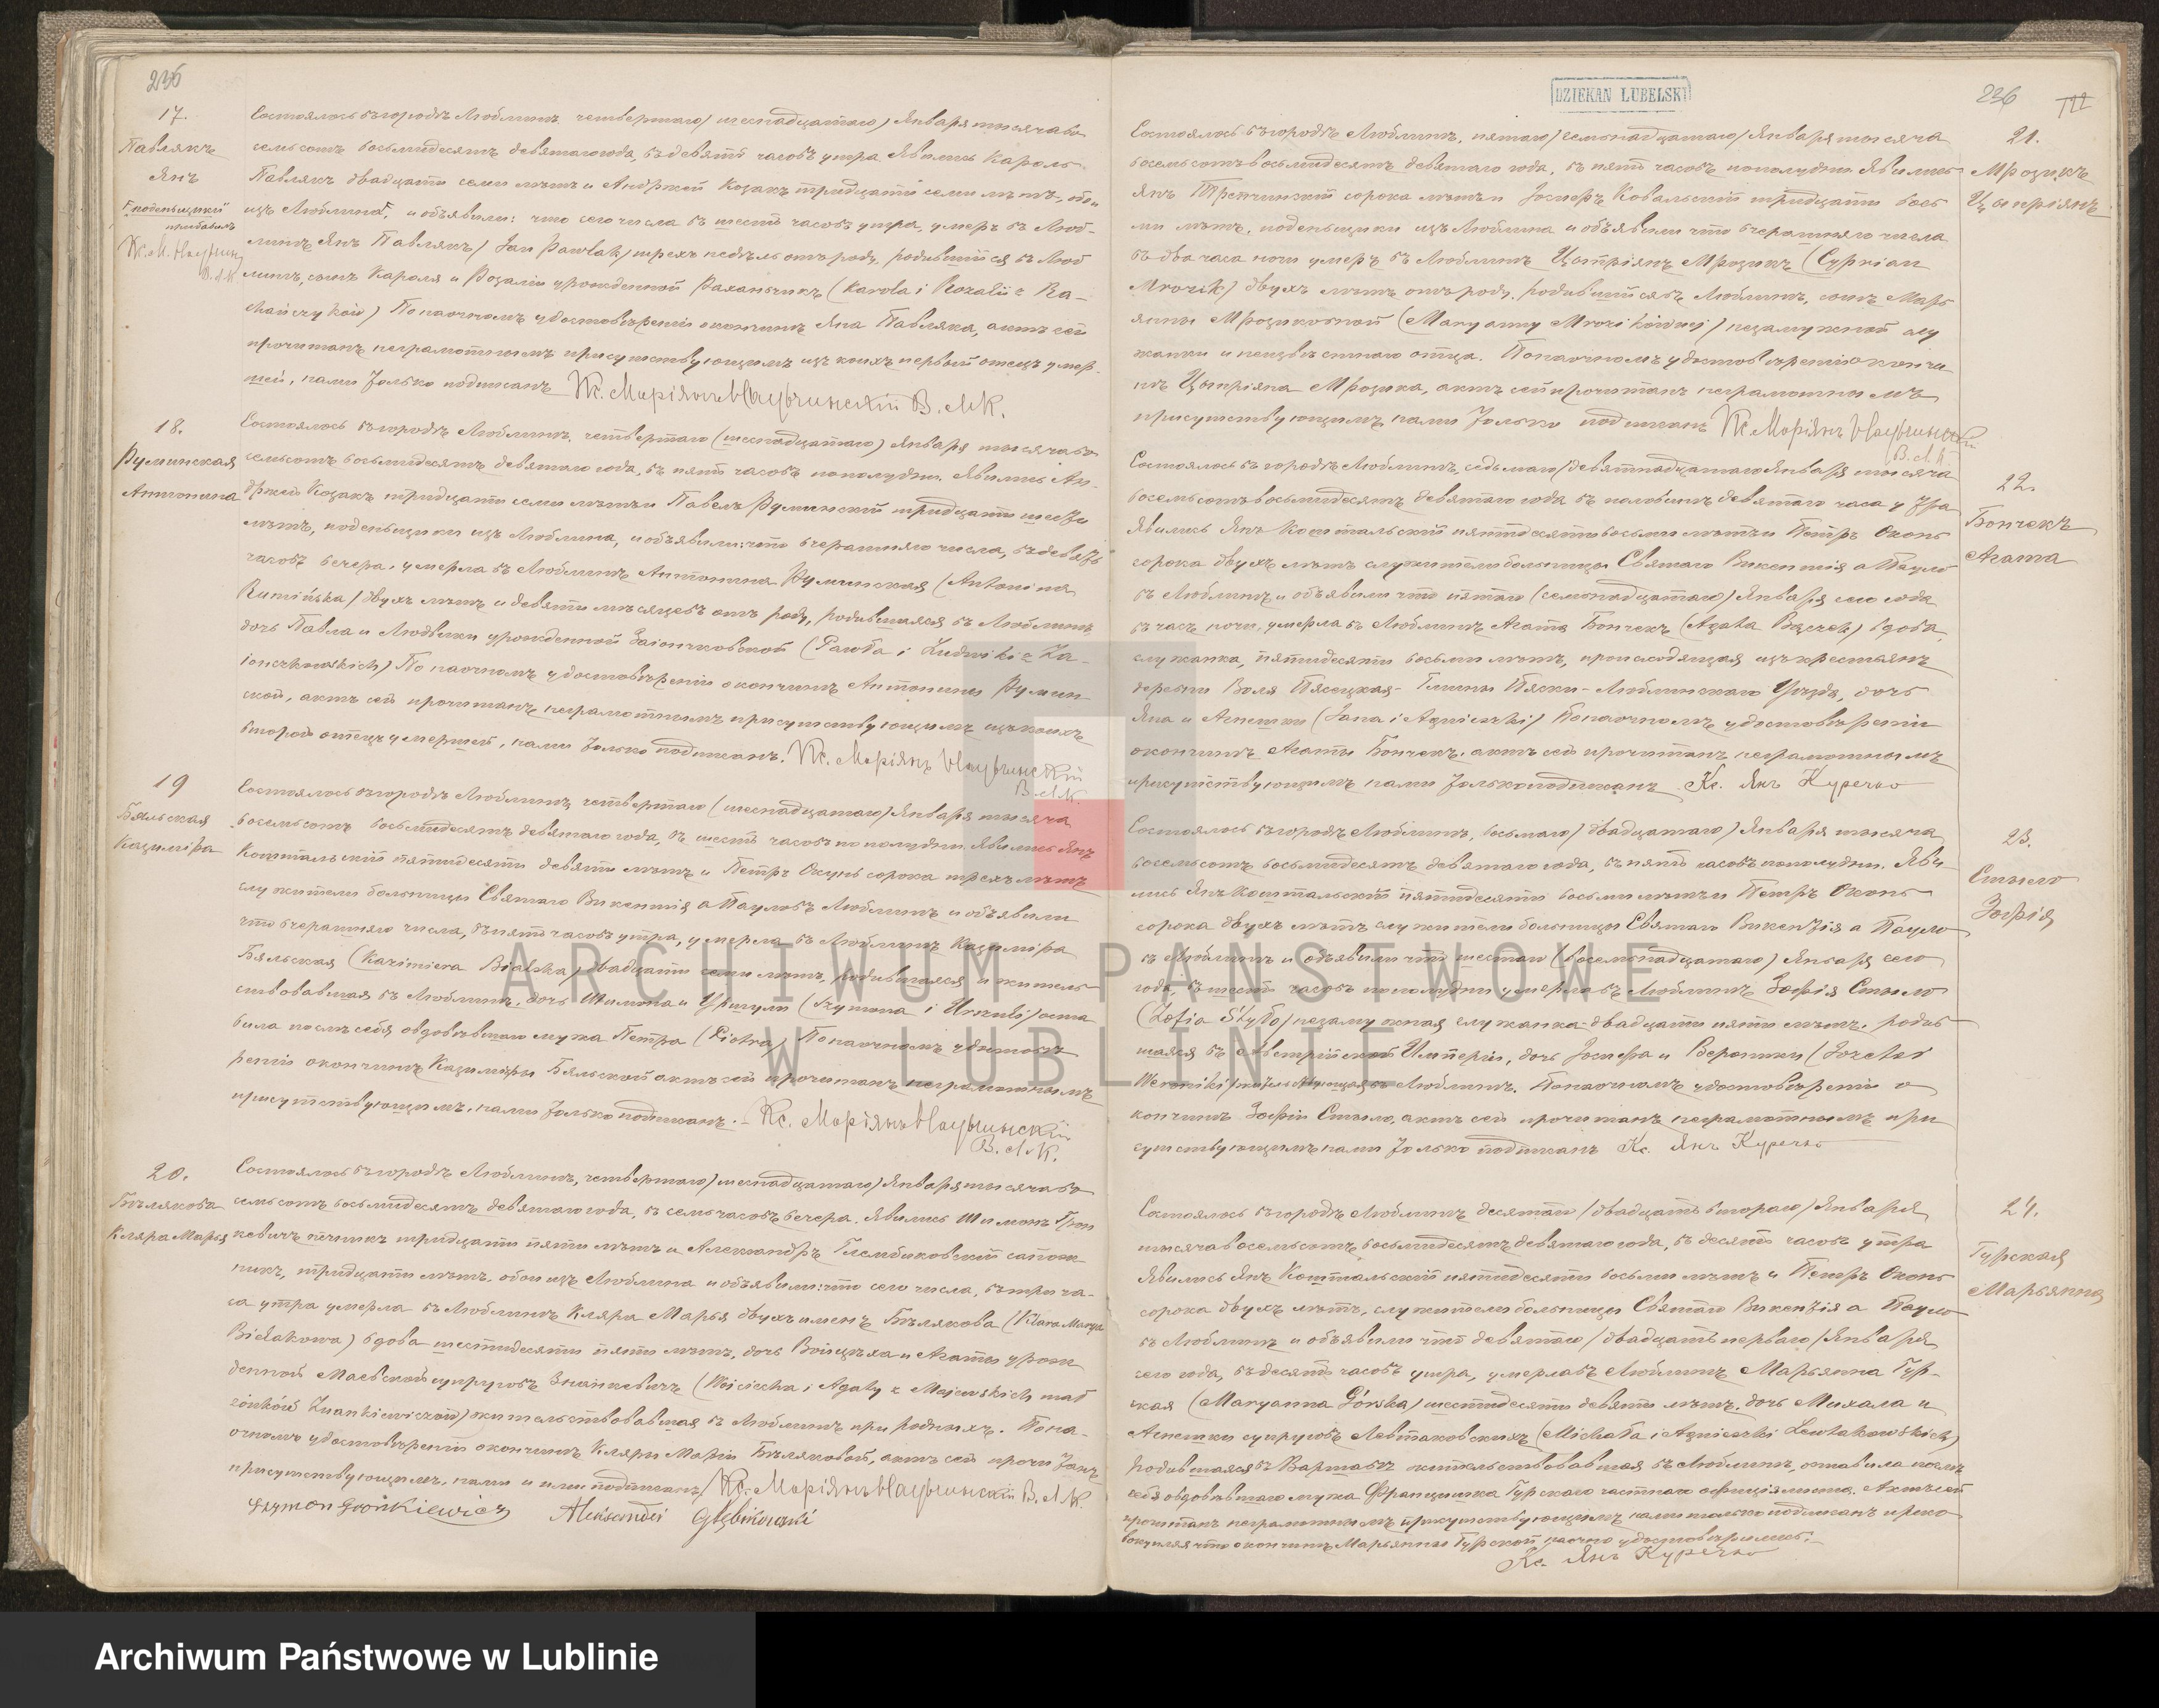 235
17.
Павлякъ
Янъ
поденьщики
прибавилъ
В. А. К.
Состоялось въ городѣ Люблинѣ четвертаго /шеснадцатаго/ Января тысяча во-
семьсотъ восьмидесятъ девятаго года, въ девять часовъ утра. Явились Кароль
Павлякъ двадцати семи лѣтъ и Андржей Козакъ тридцати семи лѣтъ, оба
изъ Люблина, и объявили: что сего числа въ шесть часовъ утра, умеръ въ Люб-
линѣ Янъ Павлякъ / Jan Pawlak / трехъ недѣль отъ роду, родившійся въ Люб
линѣ, сынъ Кароля и Розаліи урожденной Раханьчикъ (Karola i Rozalii z Ra-
chańczyków) По наочномъ удостовѣреніи о кончинѣ Яна Павляка, актъ сей
прочитанъ неграмотнымъ присутствующимъ изъ коихъ первый отецъ умер-
шей, нами только подписанъ Кс. Маріянъ В. А. К.
18.
Руминская
Антонина
Состоялось въ городѣ Люблинѣ, четвертаго (шеснадцатаго) Января тысяча во
семьсотъ восьмидесятъ девятаго года, въ пять часовъ пополудни. Явились Ан-
држей Козакъ тридцати семи лѣтъ и Павелъ Руминский тридцати шести
лѣтъ, поденьщики изъ Люблина, и объявили: что вчерашняго числа, въ девять
часовъ вечера, умерла въ Люблинѣ Антонина Руминская (Antonina
Rumińska) двухъ лѣтъ и девяти мѣсяцевъ отъ роду, родившаяся въ Люблинѣ,
дочь Павла и Людвики урожденной Заіончковской (Pawła i Ludwiki z Za-
ionczkowskich) По наочномъ удостовѣреніи о кончинѣ Антонины Румин-
ской, актъ сей прочитанъ неграмотнымъ присутствующимъ изъ коихъ
второй отецъ умершей, нами только подписанъ. Кс. Маріянъ
В. А. К.
19
Бяльская
Казиміра
Состоялось въ городѣ Люблинѣ четвертаго (шеснадцатаго) Января тысяча
восемьсотъ восьмидесятъ девятаго года, въ шесть часовъ по полудни. Явились Янъ
Коштальскій пятидесяти девяти лѣтъ и Петръ Окунь сорока трехъ лѣтъ
служители больницы Святаго Викентія а Пауло въ Люблинѣ и объявили
что вчерашняго числа, въ пять часовъ утра, умерла въ Люблинѣ Казиміра
Бяльская (Kazimiera Bialska) двадцати семи лѣтъ, родившаяся и житель-
ствовавшая въ Люблинѣ, дочь Шимона и Уршули (Szymona i Urszuli) оста
вила послѣ себя овдовѣвшаго мужа Петра (Piotra) По наочномъ удостовѣ
реніи о кончинѣ Казиміры Бяльской актъ сей прочитанъ неграмотнымъ
присутствующимъ, нами только подписанъ. Кс. Маріянъ
В. А. К.
20.
Бѣлякова
Кляра Марья
Состоялось въ городѣ Люблинѣ, четвертаго /шеснадцатаго/ Января тысяча во
семьсотъ восьмидесятъ девятаго года, въ семь часовъ вечера. Явились Шимонъ Грон
кевичъ печникъ тридцати пяти лѣтъ и Александръ Глембиковскій сапож
никъ, тридцати лѣтъ, обои изъ Люблина и объявили: что сего числа, въ три ча-
са утра умерла въ Люблинѣ Кляра Марья двухъ именъ Бѣлякова (Klara Marya
Bielakowa) вдова шестидесяти пяти лѣтъ, дочь Войцѣха и Агаты урож
денной Маевской супруговъ Знанкевичъ (Wojciecha i Agaty z Majewskich mał
żonków Znankiewiczów) жительствовавшая въ Люблинѣ при родныхъ. По на-
очномъ удостовѣреніи о кончинѣ Кляры Маріи Бѣляковой, актъ сей прочитанъ
присутствующимъ, нами и ими подписанъ / Кс. Маріянъ В. А. К.
Szymon Gronkiewicz Aleksander Głębikowski
DZIEKAN LUBELSKI
236
21.
Мрозикъ
Цыпріянъ
Состоялось въ городѣ Люблинѣ, пятаго /семьнадцатаго/ Января тысяча
восемьсотъ восьмидесятъ девятаго года, въ пять часовъ пополудни. Явились
Янъ сорока лѣтъ и Іосифъ Ковальскій тридцати вось
ми лѣтъ, поденьщики изъ Люблина и объявили что вчерашняго числа
въ два часа ночи умеръ въ Люблинѣ Цыпріянъ Мрозикъ (Cyprian
Mrozik) двухъ лѣтъ отъ роду, родившійся въ Люблинѣ, сынъ Марь
янны Мрозиковной (Maryanny Mrozikównej) незамужной слу
жанки и неизвѣстнаго отца. По наочномъ удостовѣреніи о кончи
нѣ Цыпріяна Мрозика, актъ сей прочитанъ неграмотнымъ
присутствующимъ, нами только подписанъ Кс. Маріянъ
В. А. К
22.
Бончекъ
Агата
Состоялось въ городѣ Люблинѣ, седьмаго /девятнадцатаго Января тысяча
восемьсотъ восьмидесятъ девятаго года въ половинѣ девятаго часа утра
Явились Янъ Коштальский пятидесяти восьми лѣтъ и Петръ Оконь
сорока двухъ лѣтъ служители больницы Святаго Викентія а Пауло
въ Люблинѣ и объявили что пятаго (семьнадцатаго) Января сего года
въ часъ ночи, умерла въ Люблинѣ Агата Бончекъ (Agata Bączek) вдова,
служанка, пятидесяти восьми лѣтъ, происходящая изъ крестьянъ
деревни Воля Пясецкая - Гмины Пяски - Люблинскаго Уѣзда, дочь
Яна и Агнешки (Jana i Agnieszki) По наочномъ удостовѣреніи
о кончинѣ Агаты Бончекъ, актъ сей прочитанъ неграмотнымъ
присутствующимъ нами только подписанъ Кс. Янъ Куречко
23.
Стыло
Зофія
Состоялось въ городѣ Люблинѣ, восьмаго /двадцатаго/ Января тысяча
восемьсотъ восьмидесятъ девятаго года, въ пять часовъ пополудни. Яви
лись Янъ Коштальский пятидесяти восьми лѣтъ и Петръ Оконь
сорока двухъ лѣтъ служители больницы Святаго Викентія а Пауло
въ Люблинѣ и объявили что шестаго (восемьнадцатаго) Января сего
года, въ шесть часовъ пополудни умерла въ Люблинѣ Зофія Стыло
(Zofia Styło) незамужная служанка двадцати пяти лѣтъ, родив
шаяся въ Австрійской Имперіи, дочь Іосифа и Вероники (Józefa i
Weroniki) жительствующая въ Люблинѣ. По наочномъ удостовѣреніи о
кончинѣ Зофіи Стыло, актъ сей прочитанъ неграмотнымъ при
сутствующимъ нами только подписанъ Кс. Янъ Куречко
24.
Гурская
Марьянна
Состоялось въ городѣ Люблинѣ десятаго /двадцать втораго/ Января
тысяча восемьсотъ восьмидесятъ девятаго года, въ десять часовъ утра
Явились Янъ Коштальскій пятидесяти восьми лѣтъ и Петръ Оконь
сорока двухъ лѣтъ, служители больницы Святаго Викентія а Пауло
въ Люблинѣ и объявили что девятаго /двадцать перваго/ Января
сего года, въ десять часовъ утра, умерла въ Люблинѣ Марьянна Гур-
ская (Maryanna Górska) шестидесяти девяти лѣтъ, дочь Михала и
Агнешки супруговъ Левтаковскихъ (Michała i Agnieszki Lewtakowskich)
родившаяся въ Варшавѣ жительствовавшая въ Люблинѣ, оставила послѣ
себя овдовѣвшаго мужа Францишка Гурскаго частнаго оффиціялиста. Актъ сей
прочитанъ неграмотнымъ присутствующимъ нами только подписанъ присо
вокупляя что о кончинѣ Марьянны Гурской наочно удостовѣрились.
Кс. Янъ Куречко
ARCHIWUM PAŃSTWOWE
W LUBLINIE
Archiwum Państwowe w Lublinie